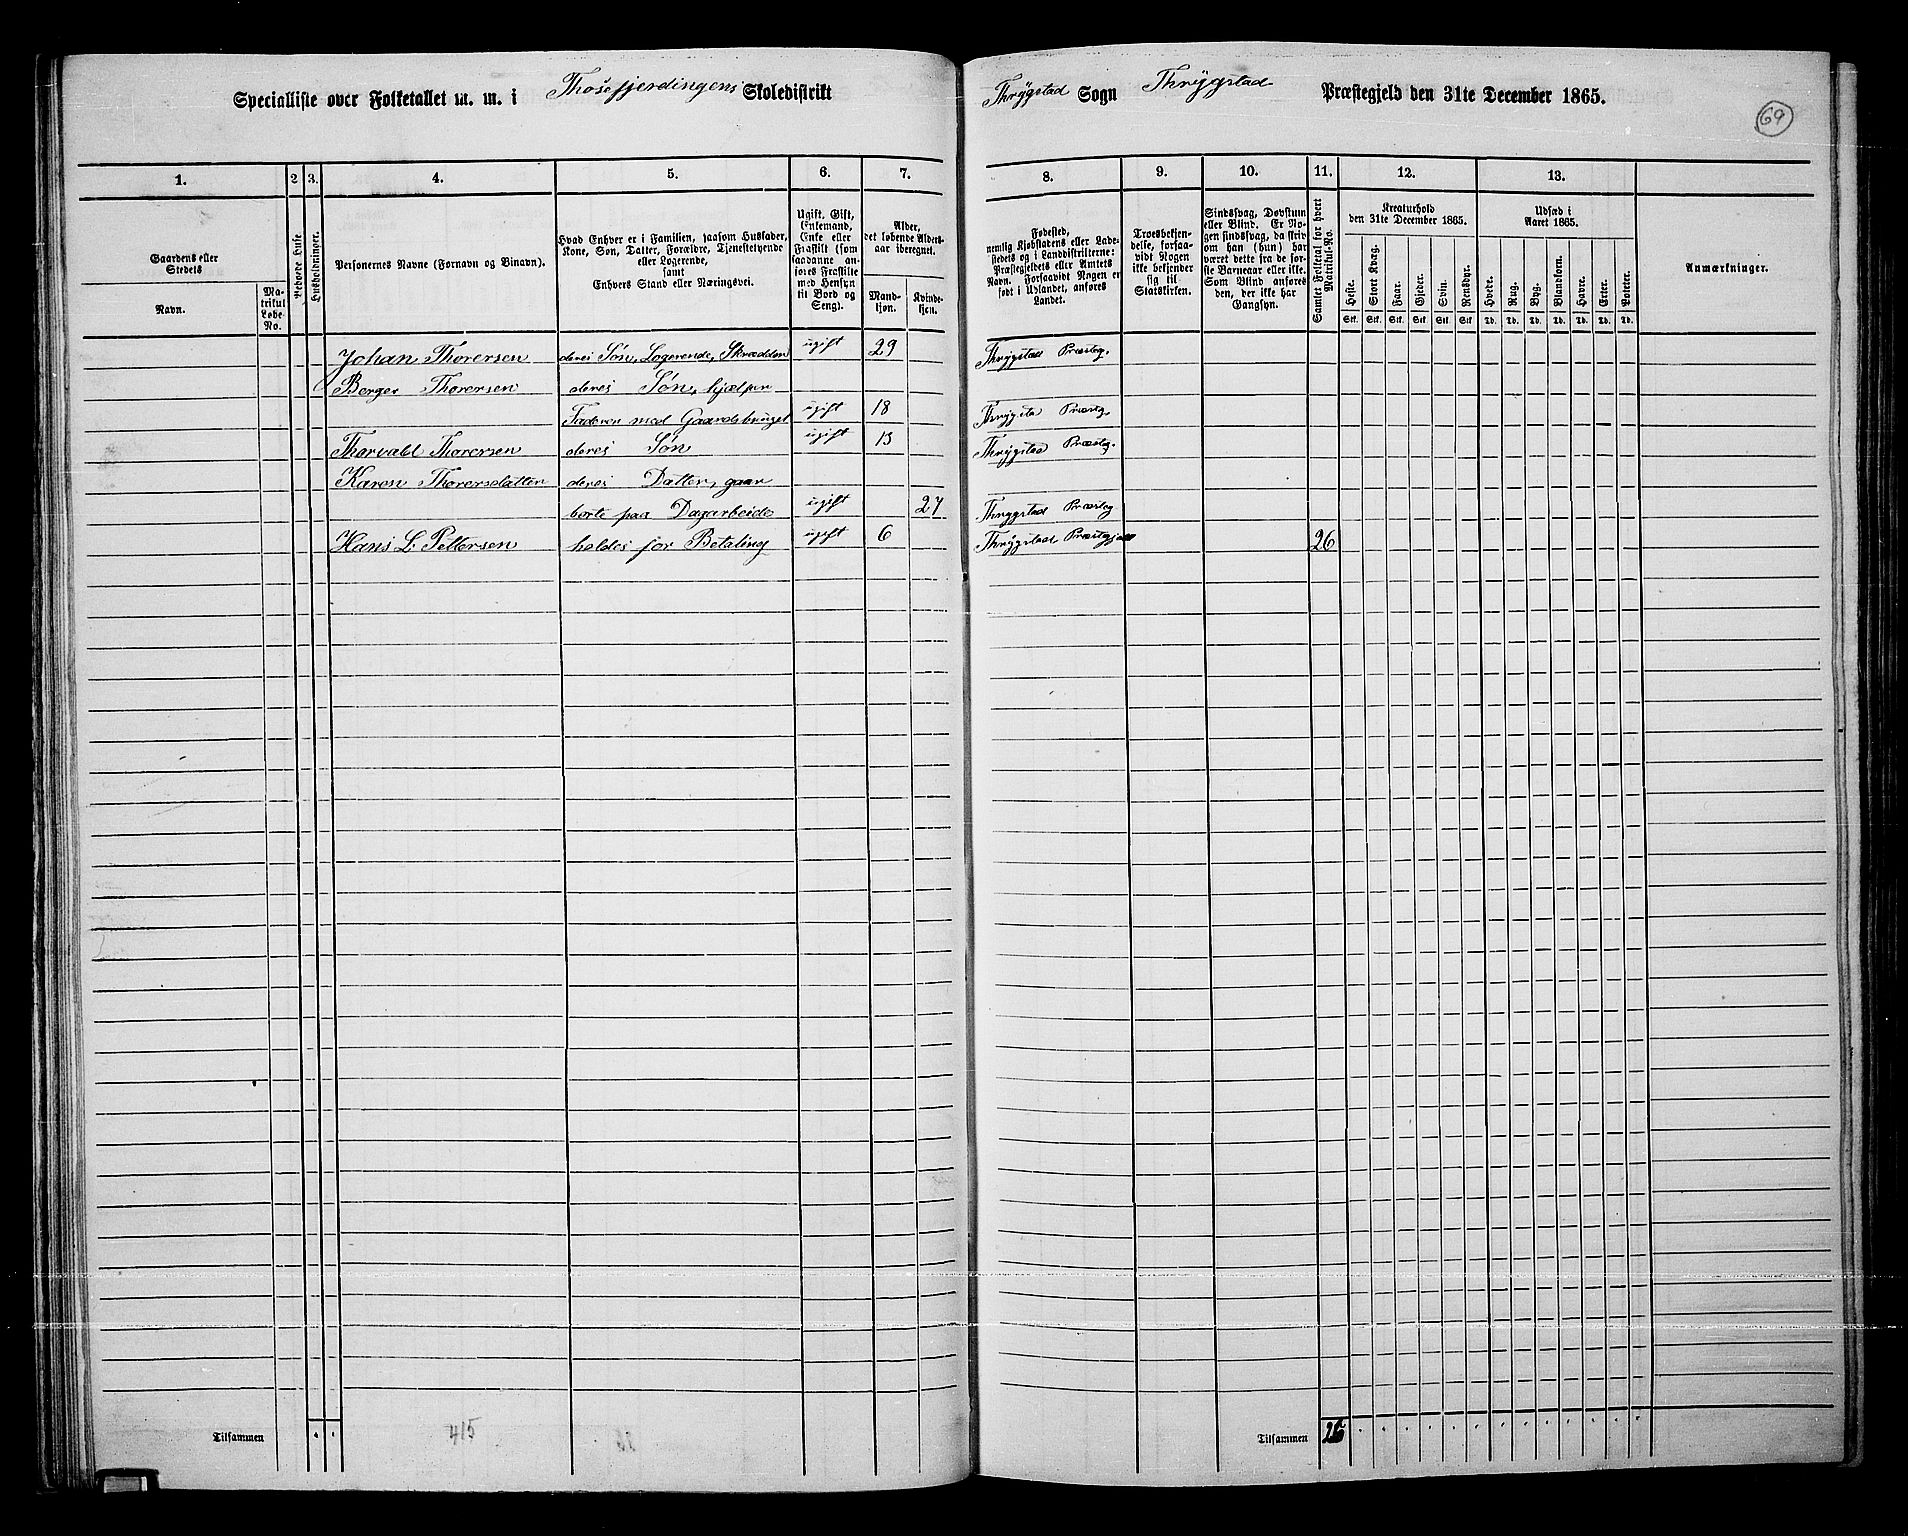 Specialliste over Folketallet m. m. i Thosefjerdingens Skoledistrikt
Thrygstad Sogn Thrygstad Præstegjeld den 31te December 1865.
69
1. 2 3. 4. 5. 6. 7. 8. 9. 10. 11. 12. 13.
Gaardens eller Stedets
Navn.
Matrikul Løbe-No.
Beboede Huse
Husholdninger.
Personernes Navne (Fornavn og Binavn).
Hvad Enhver er i Familien, saasom Husfader,
Kone, Søn, Datter, Forældre, Tjenestetyende
eller Logerende,
samt
Enhvers Stand eller Næringsvei.
Ugift, Gift,
Enkemand,
Enke eller
Fraskilt (som
saadanne an-
føres Fraskilte
med Hensyn
til Bord og
Seng).
Alder,
det løbende Alders-
aar iberegnet.
Mand-
kjøn.
Kvinde-
kjøn.
Fødested,
nemlig Kjøbstadens eller Lade-
stedets og i Landdistrikterne:
Præstegjeldets eller Amtets
Navn. Forsaavidt Nogen er
født i Udlandet, anføres
Landet.
Troesbekjen-
delse, forsaa-
vidt Nogen
ikke bekjender
sig til
Statskirken.
Sindssvag, Døvstum
eller Blind. Er No-
gen sindssvag, da skriv
om han (hun) har
været dette fra de før-
ste Barneaar eller ikke.
Som Blind anføres
den, der ikke har
Gangsyn.
Samlet Folketal for hvert
Matrikul-No.
Kreaturhold
den 31te December 1865.
Heste. Stort Kvæg. Faar. Gjeder. Svin. Rensdyr.
Stk. Stk. Stk. Stk. Stk. Stk.
Udsæd i
Aaret 1865.
Hvede. Rug. Byg. Blandkorn. Havre. Erter. Poteter.
Td. Td. Td. Td. Td. Td. Td.
Anmærkninger.
Johan Thorersen deres Søn, Logerende, ugift 29 Præsteg.
Berger Thorersen deres Søn, hjælper
Faderen med Gaardsbruget ugift 18 Præsteg
Thorvald Thorersen deres Søn ugift 13 Præsteg.
Karen Thorersdatter deres Datter, gaar
borte paa Dagarbeide ugift 27 Thrygstad Præsteg
Hans L. Pettersen holdes for Betaling ugift 6 26
Tilsammen 415
Tilsammen 26